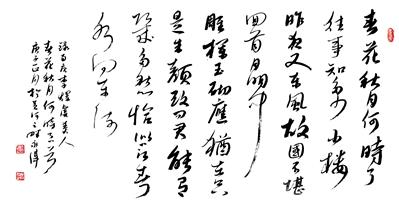 春花秋月何時了
往事知多少小樓
昨夜又東風故國不堪
回首月明中
雕欄玉砌應猶在只
是朱顏改問君能有
幾多愁恰似一江春
水向東流
錄南唐李煜虞美人
春花秋月何時了